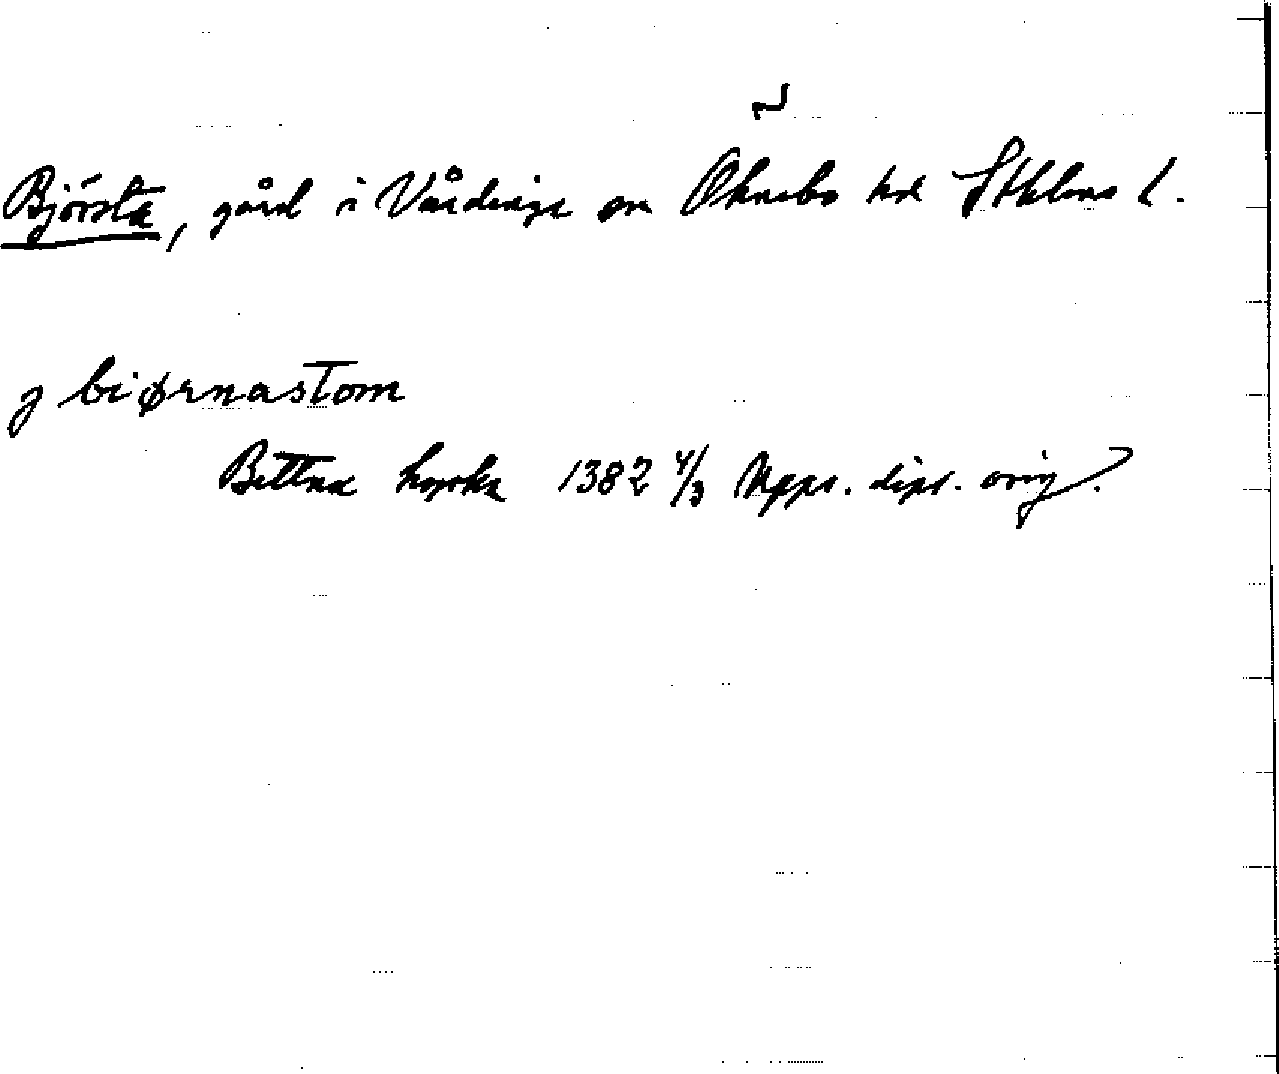 Björsta, gård i Vårdinge sn Öknebo hd Sthlms l.
j biørnastom
Bettna kyrka 1382 4/3 Upps. dipl. orig.